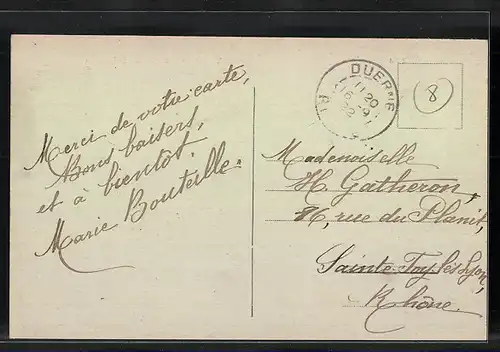 Merci de votre carte,
Bons baisers,
et à bientôt.
Marie Bouteille.
DUERNE
11 20
16 -9
22
8
Mademoiselle
H. Gatheron,
rue du Planit,
Sainte-Foy-lès-Lyon,
Rhône.